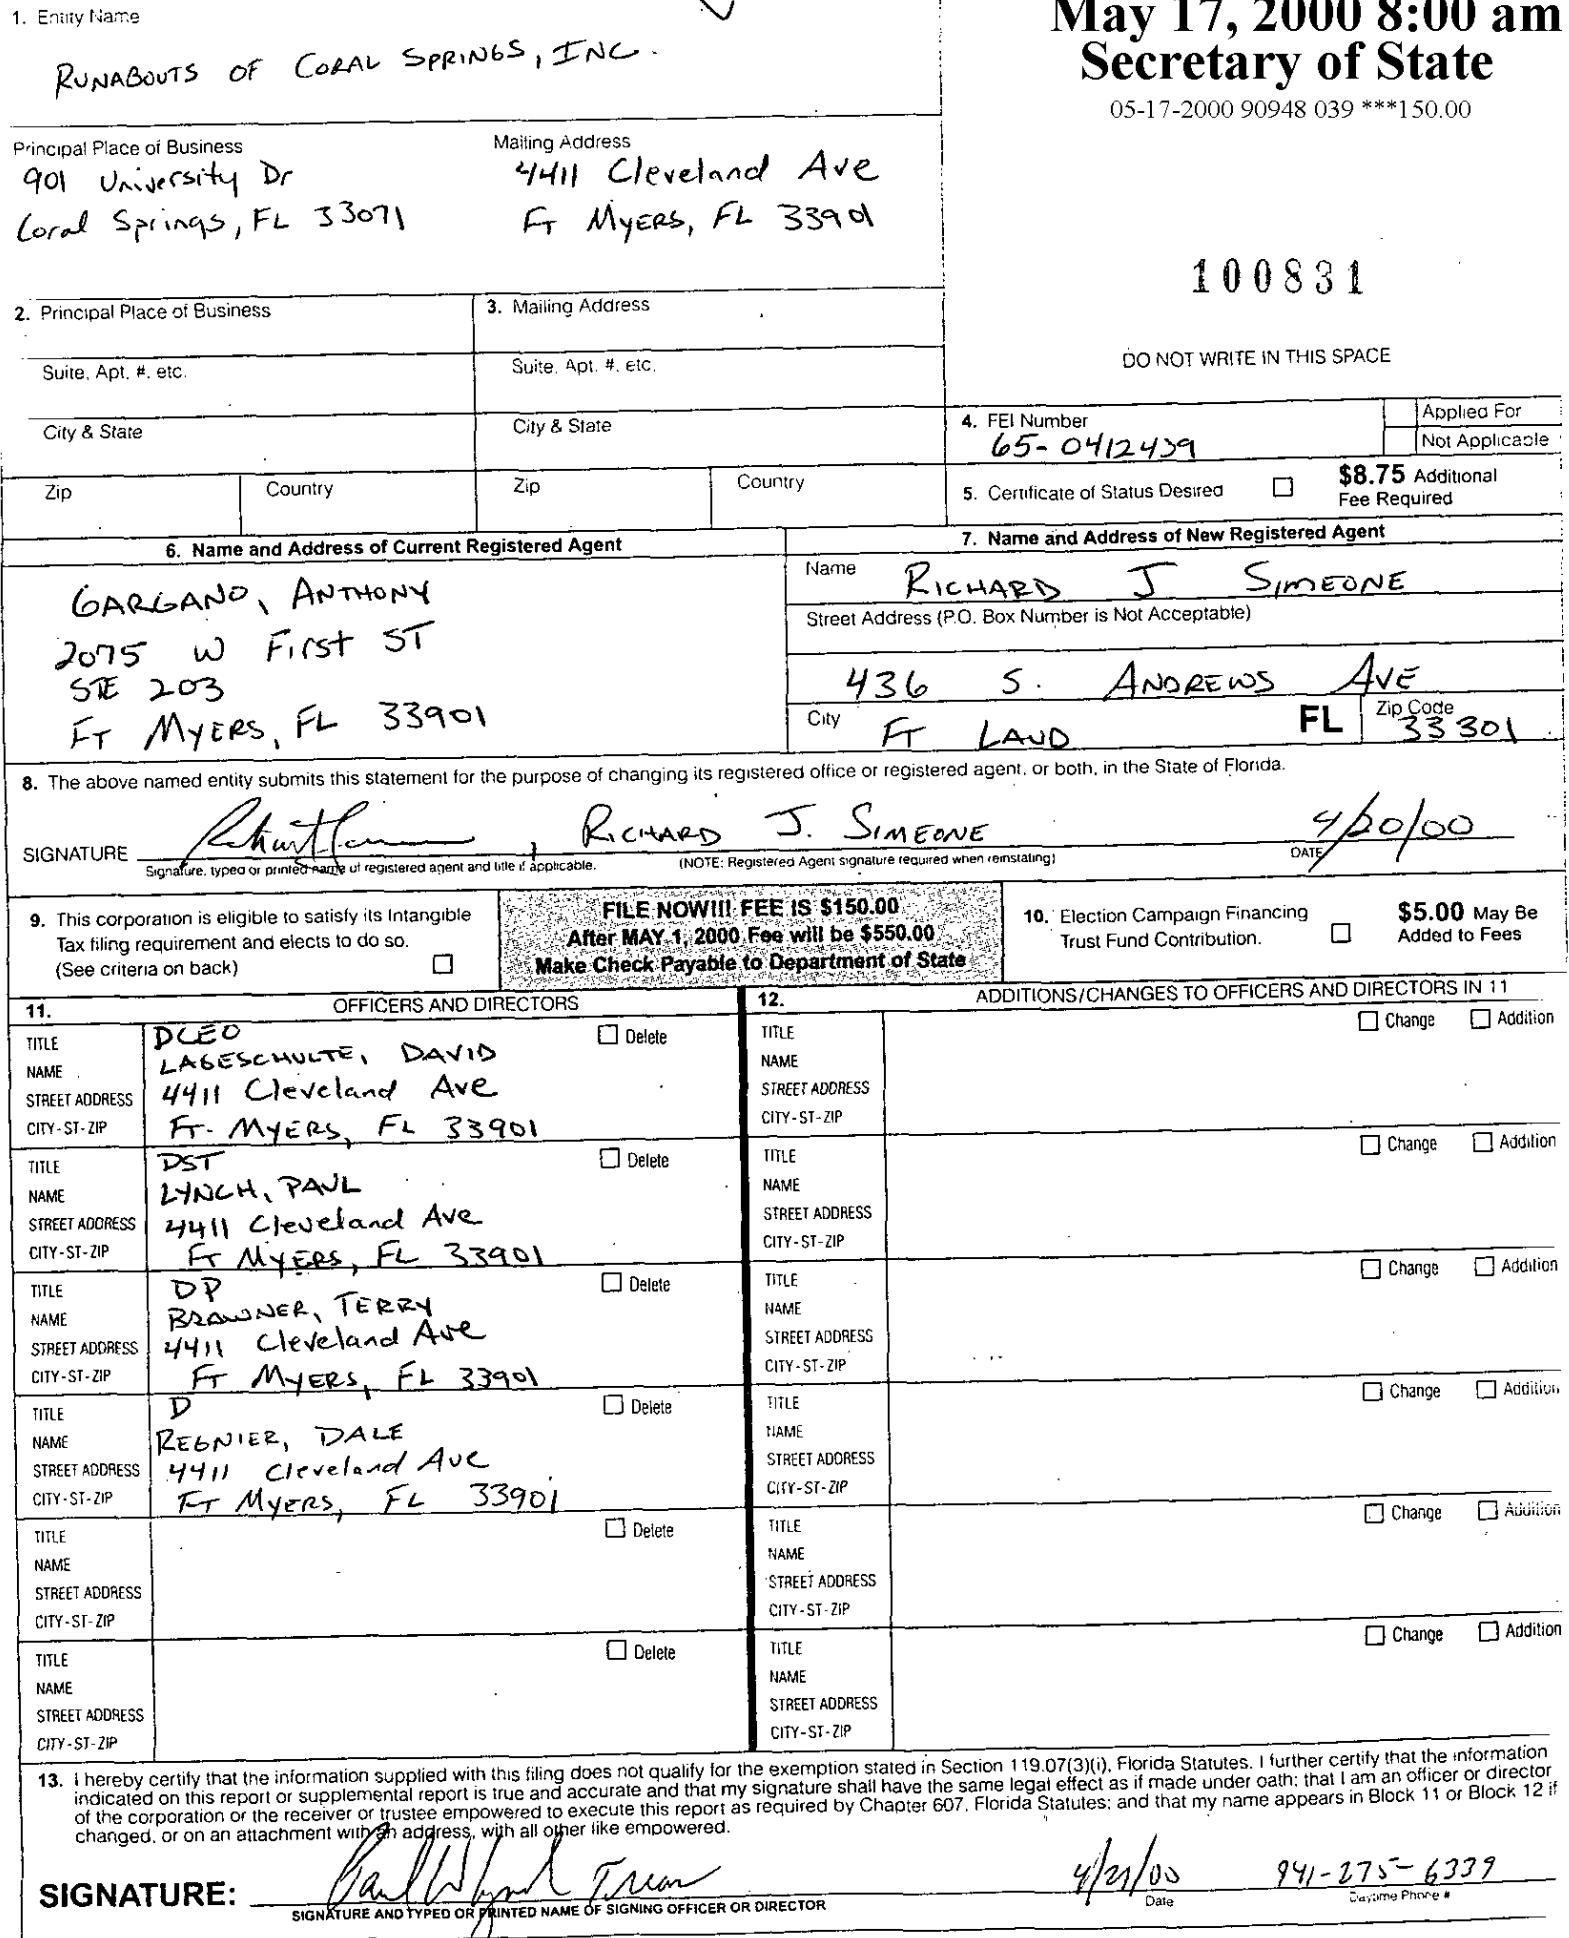 1. Entity Name
RUNABOUTS OF CORAL SPRINGS, INC.
May 17, 2000 8:00 am
Secretary of State
05-17-2000 90948 039 ***150.00
Principal Place of Business
901 University Dr
Coral Springs, FL 33071
Mailing Address
4411 Cleveland Ave
FT MYERS, FL 33901
100831
2. Principal Place of Business
3. Mailing Address
Suite, Apt. #, etc.
Suite, Apt. #, etc.
DO NOT WRITE IN THIS SPACE
City & State
City & State
4. FEI Number
65-0412439
Applied For
Not Applicable
Zip
Country
Zip
Country
5. Certificate of Status Desired
$8.75 Additional
Fee Required
6. Name and Address of Current Registered Agent
GARGANO, ANTHONY
2075 W First ST
STE 203
FT MYERS, FL 33901
7. Name and Address of New Registered Agent
Name RICHARD J SIMEONE
Street Address (P.O. Box Number is Not Acceptable)
436 S. ANDREWS AVE
City FT LAUD FL Zip Code 33301
8. The above named entity submits this statement for the purpose of changing its registered office or registered agent, or both, in the State of Florida.
SIGNATURE , RICHARD J. SIMEONE 4/20/00
Signature, typed or printed name of registered agent and title if applicable. (NOTE: Registered Agent signature required when reinstating) DATE
9. This corporation is eligible to satisfy its Intangible
Tax filing requirement and elects to do so.
(See criteria on back)
FILE NOW!!! FEE IS $150.00
After MAY 1, 2000 Fee will be $550.00
Make Check Payable to Department of State
10. Election Campaign Financing
Trust Fund Contribution.
$5.00 May Be
Added to Fees
11. OFFICERS AND DIRECTORS
12. ADDITIONS/CHANGES TO OFFICERS AND DIRECTORS IN 11
TITLE DCEO Delete
NAME LAGESCHULTE, DAVID
STREET ADDRESS 4411 Cleveland Ave
CITY-ST-ZIP FT. MYERS, FL 33901
TITLE Change Addition
NAME
STREET ADDRESS
CITY-ST-ZIP
TITLE DST Delete
NAME LYNCH, PAUL
STREET ADDRESS 4411 Cleveland Ave
CITY-ST-ZIP FT MYERS, FL 33901
TITLE Change Addition
NAME
STREET ADDRESS
CITY-ST-ZIP
TITLE DP Delete
NAME BRAWNER, TERRY
STREET ADDRESS 4411 Cleveland Ave
CITY-ST-ZIP FT MYERS, FL 33901
TITLE Change Addition
NAME
STREET ADDRESS
CITY-ST-ZIP
TITLE D Delete
NAME REGNIER, DALE
STREET ADDRESS 4411 Cleveland Ave
CITY-ST-ZIP FT MYERS, FL 33901
TITLE Change Addition
NAME
STREET ADDRESS
CITY-ST-ZIP
TITLE Delete
NAME
STREET ADDRESS
CITY-ST-ZIP
TITLE Change Addition
NAME
STREET ADDRESS
CITY-ST-ZIP
TITLE Delete
NAME
STREET ADDRESS
CITY-ST-ZIP
TITLE Change Addition
NAME
STREET ADDRESS
CITY-ST-ZIP
13. I hereby certify that the information supplied with this filing does not qualify for the exemption stated in Section 119.07(3)(i), Florida Statutes. I further certify that the information
indicated on this report or supplemental report is true and accurate and that my signature shall have the same legal effect as if made under oath; that I am an officer or director
of the corporation or the receiver or trustee empowered to execute this report as required by Chapter 607, Florida Statutes; and that my name appears in Block 11 or Block 12 if
changed, or on an attachment with an address, with all other like empowered.
SIGNATURE: 4/21/00 941-275-6339
SIGNATURE AND TYPED OR PRINTED NAME OF SIGNING OFFICER OR DIRECTOR Date Daytime Phone #